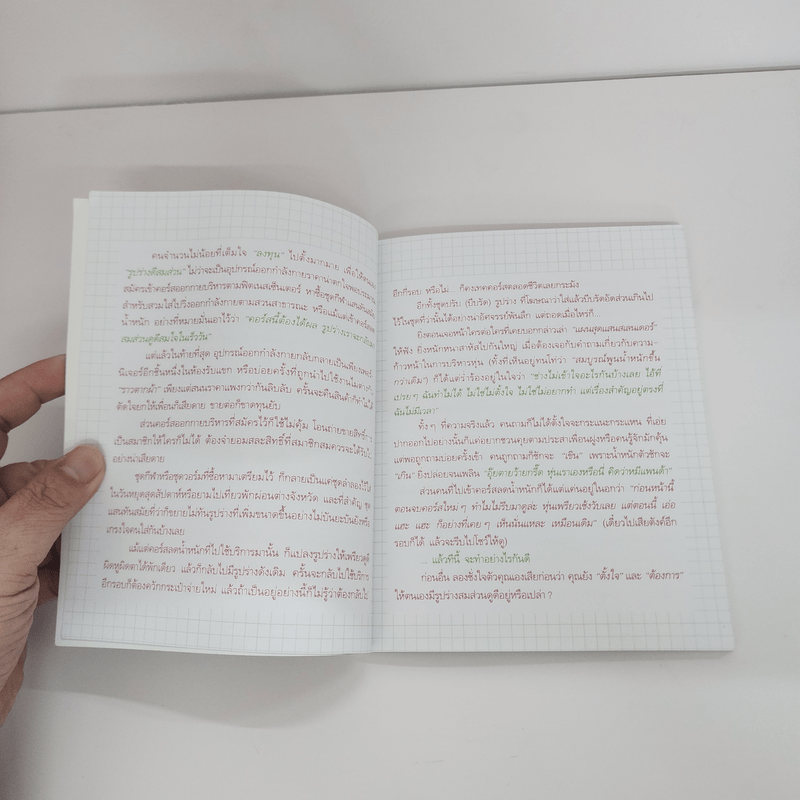 คนจำนวนไม่น้อยที่เต็มใจ "ลงทุน" ไปตั้งมากมาย เพื่อให้
"รูปร่างดีสมส่วน" ไม่ว่าจะเป็นอุปกรณ์ออกกำลังกายราคาน่าตกใจพอประมาณ
สมัครเข้าคอร์สออกกายบริหารตามฟิตเนสเซ็นเตอร์ หาซื้อชุดกีฬาแสนทันสมัย
สำหรับสวมใส่ไปวิ่งออกกำลังกายตามสวนสาธารณะ หรือแม้แต่เข้าคอร์สลด
น้ำหนัก อย่างที่หมายมั่นเอาไว้ว่า "คอร์สนี้ต้องได้ผล รูปร่างเราจะกลับมา
สมส่วนดูดีสมใจในเร็ววัน"
แต่แล้วในท้ายที่สุด อุปกรณ์ออกกำลังกายกลับกลายเป็นเพียงเฟอร์-
นิเจอร์อีกชิ้นหนึ่งในห้องรับแขก หรือบ่อยครั้งที่ถูกนำไปใช้งานไม่ต่างกับ
"ราวตากผ้า" เพียงแต่สนนราคาแพงกว่ากันลิบลับ ครั้นจะคืนสินค้าก็ทำไม่ได้
ตัดใจยกให้เพื่อนก็เสียดาย ขายต่อก็ขาดทุนยับ
ส่วนคอร์สออกกายบริหารที่สมัครไว้ก็ใช้ไม่คุ้ม โอนถ่ายขายสิทธิ์
เป็นสมาชิกให้ใครก็ไม่ได้ ต้องจำยอมสละสิทธิ์ที่สมาชิกสมควรจะได้รับไป
อย่างน่าเสียดาย
ชุดกีฬาหรือชุดวอร์มที่ซื้อหามาเตรียมไว้ ก็กลายเป็นแค่ชุดลำลองไว้ใส่
ในวันหยุดสุดสัปดาห์หรือยามไปเที่ยวพักผ่อนต่างจังหวัด และที่สำคัญ ชุด
แสนทันสมัยที่ว่าก็ขยายไม่ทันรูปร่างที่เพิ่มขนาดขึ้นอย่างไม่บันยะบันยังหรือ
เกรงใจคนใส่กันบ้างเลย
แม้แต่คอร์สลดน้ำหนักที่ไปใช้บริการมานั้น ก็แปลงรูปร่างให้เพรียวดูดี
ผิดหูผิดตาได้พักเดียว แล้วก็กลับไปมีรูปร่างดังเดิม ครั้นจะกลับไปใช้บริการ
อีกรอบก็ต้องควักกระเป๋าจ่ายใหม่ แล้วถ้าเป็นอยู่อย่างนี้ก็ไม่รู้ว่าต้องกลับไป
อีกกี่รอบ หรือไม่... ก็คงเทคคอร์สตลอดชีวิตเลยกระมัง
อีกทั้งชุดปรับ (บีบรัด) รูปร่าง ที่โฆษณาว่าใส่แล้วบีบรัดอัดส่วนเกินไป
ไว้ในชุดที่ว่านั้นได้อย่างน่าอัศจรรย์พันลึก แต่ถอดเมื่อไหร่ก็...
ยิ่งตอนเจอหน้าใครต่อใครที่เคยบอกกล่าวเล่า "แผนสุดแสนสเลนเดอร์"
ให้ฟัง ยิ่งหนักหนาสาหัสไปกันใหญ่ เมื่อต้องเจอกับคำถามเกี่ยวกับความ-
ก้าวหน้าในการบริหารหุ่น (ทั้งที่เห็นอยู่ทนโท่ว่า "สมบูรณ์พูนน้ำหนักขึ้น
กว่าเดิม") ก็ได้แต่ร่ำร้องอยู่ในใจว่า "ช่างไม่เข้าใจอะไรกันบ้างเลย ไอ้ที่
เปรยๆ ฉันทำไม่ได้ ไม่ใช่ไม่ตั้งใจ ไม่ใช่ไม่อยากทำ แต่เรื่องสำคัญอยู่ตรงที่
ฉันไม่มีเวลา"
ทั้งๆ ที่ความจริงแล้ว คนถามก็ไม่ได้ตั้งใจจะกระแนะกระแหน ที่เอ่ย
ปากออกไปอย่างนั้นก็แค่อยากชวนคุยตามประสาเพื่อนฝูงหรือคนรู้จักมักคุ้น
แต่พอถูกถามบ่อยครั้งเข้า คนถูกถามก็ชักจะ "เขิน" เพราะน้ำหนักตัวชักจะ
"เกิน" ยิ่งปล่อยจนเพลิน "อุ๊ยตายว้ายกรี๊ด หุ่นเราเองหรือนี่ คิดว่าหมีแพนด้า"
ส่วนคนที่ไปเข้าคอร์สลดน้ำหนักก็ได้แต่แค่นอยู่ในอกว่า "ก่อนหน้านี้
ตอนจบคอร์สใหม่ๆ ทำไมไม่รีบมาดูล่ะ หุ่นเพรียวเช้งวับเลย แต่ตอนนี้ เอ่อ
แฮะ แฮะ ก็อย่างที่เคยๆ เห็นนั่นแหละ เหมือนเดิม" (เดี๋ยวไปเสียตังค์อีก
รอบก็ได้ แล้วจะรีบไปโชว์ให้ดู)
... แล้วทีนี้ จะทำอย่างไรกันดี
ก่อนอื่น ลองชั่งใจตัวคุณเองเสียก่อนว่า คุณยัง "ตั้งใจ" และ "ต้องการ"
ให้ตนเองมีรูปร่างสมส่วนดูดีอยู่หรือเปล่า ?